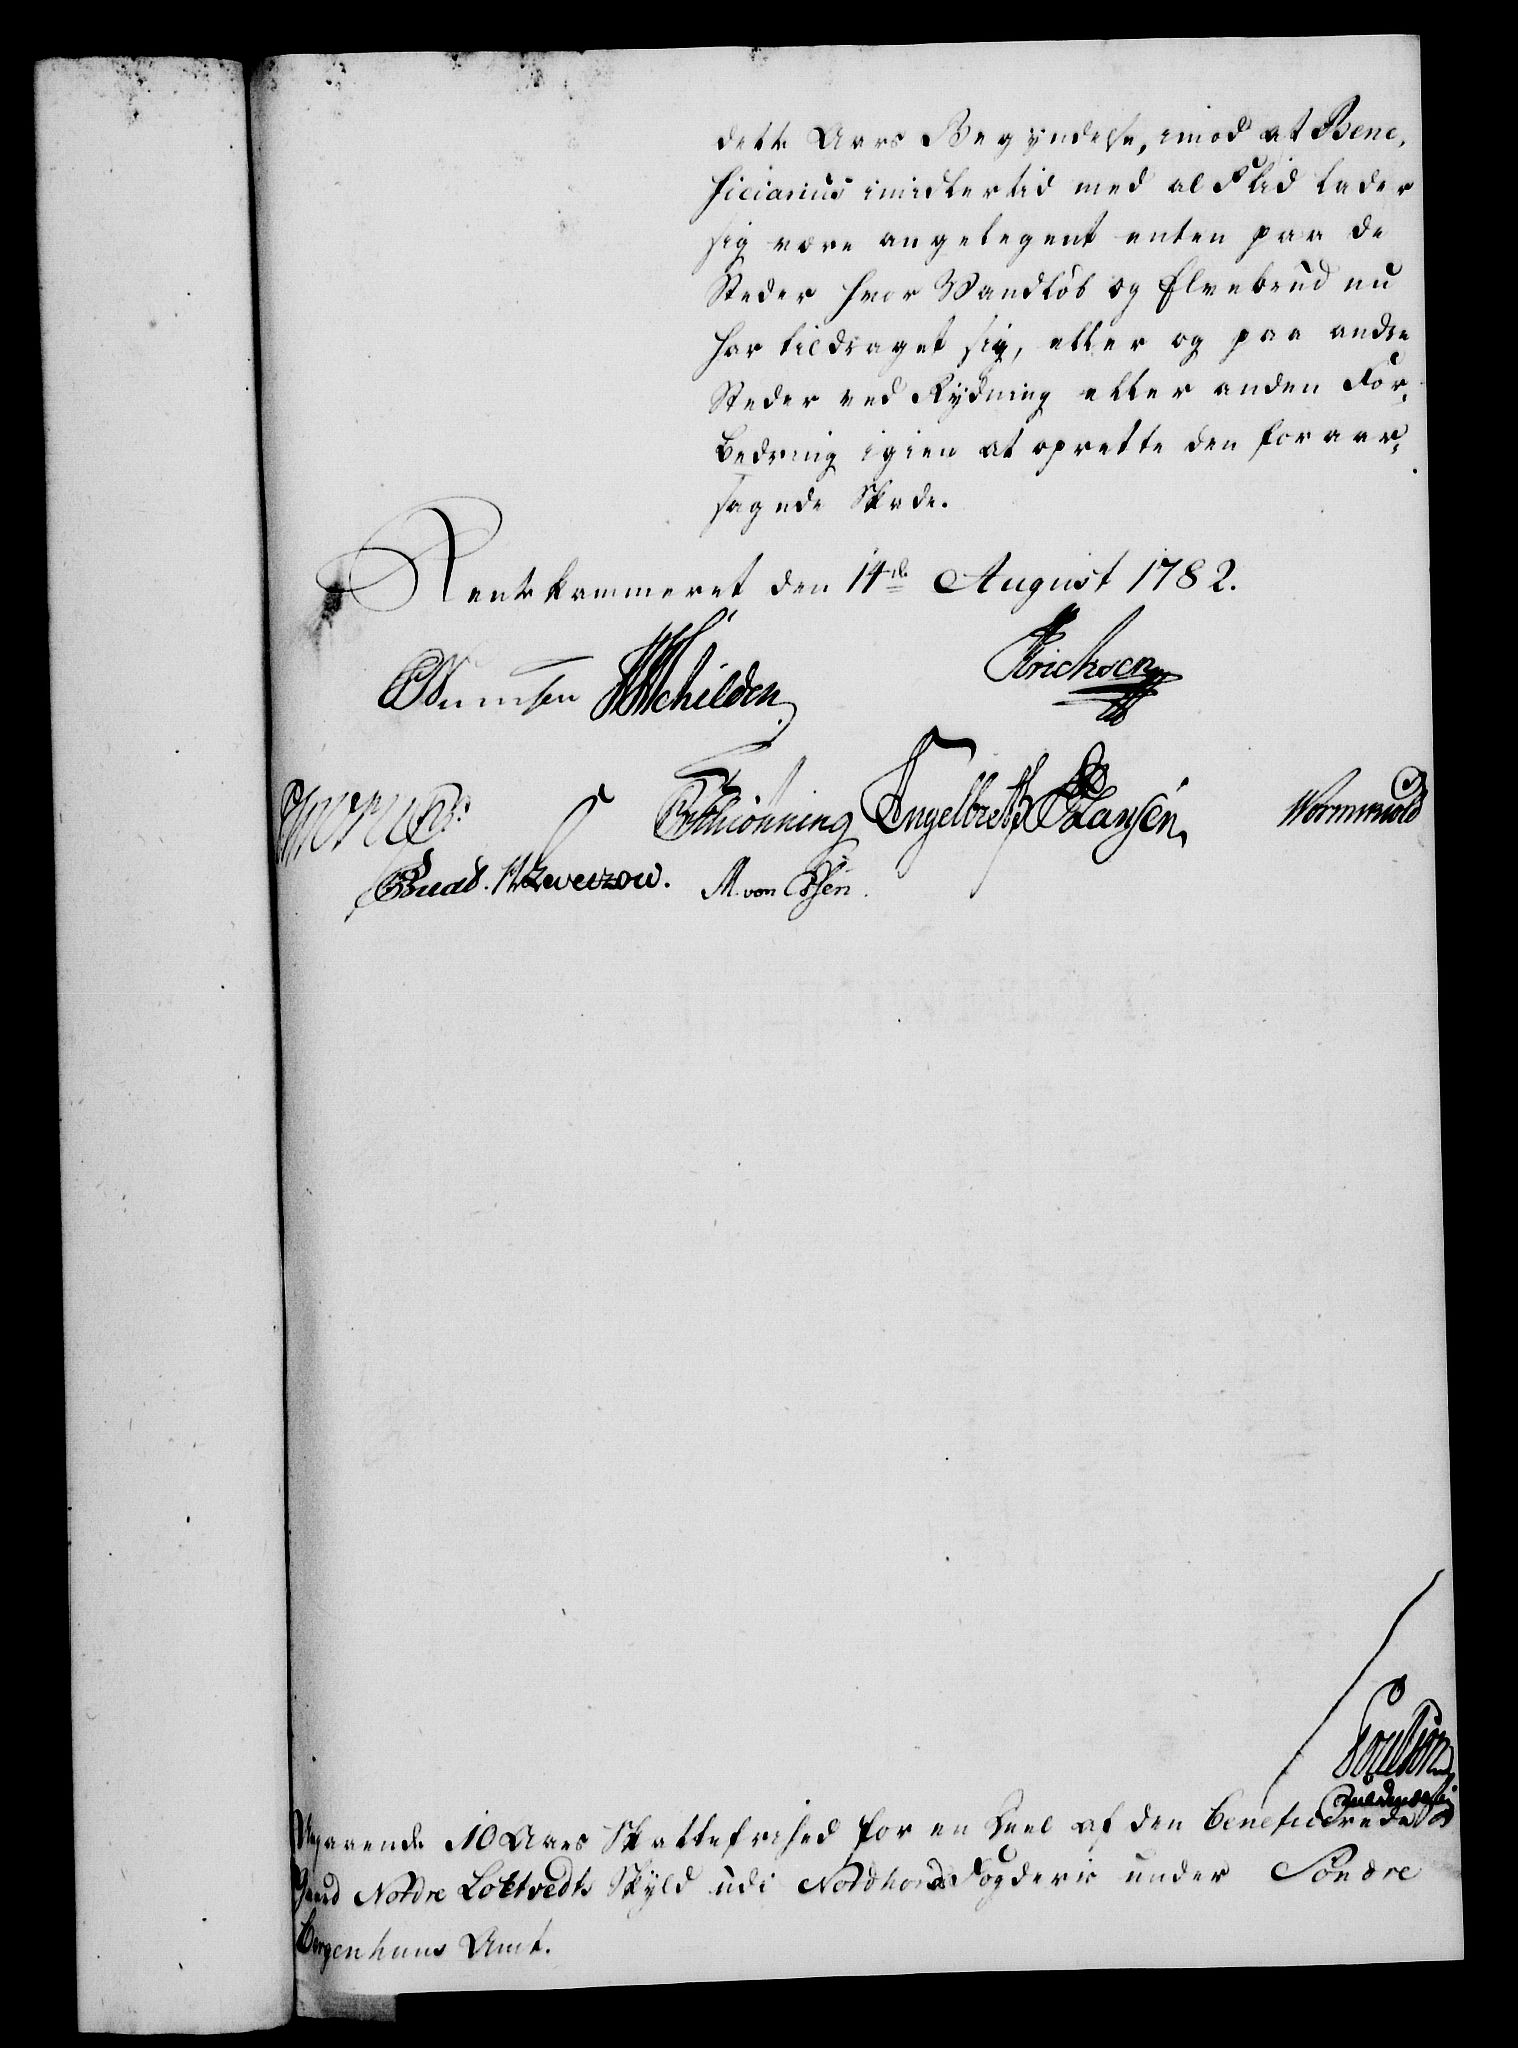 dette Aars Begyndelse, imod at Bene,
ficiarius imidlertid med al Flid lader
sig være angelegent enten paa de
Steder hvor Vandløb og Elvebrud nu
har tildraget sig, eller og paa andre
Steder ved Rydning eller anden For,
bedring igien at oprette den foraar,
sagede Skade.
Rentekammeret den 14de August 1782.
Schilden Erichsen
Schiønning Engelbreth Hansen Wormskiold
Knud. Levetzow. M. von Essen.
Angaaende 10 Aars Skattefrihed for en Deel af den beneficerede
Gaard Nordre Loktvedts Skyld udi Nordhors Fogderie under Søndre
Bergenhuus Amt.